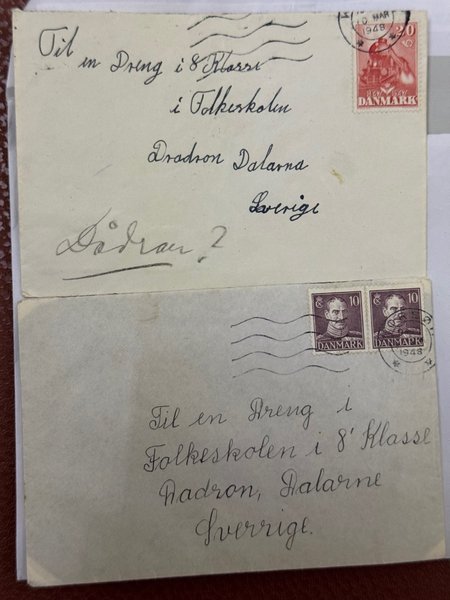 10 MAR
1948
DANMARK
Til
en Dreng i 8 Klasse
i Folkeskolen
Dradron Dalarna
Sverige
Dådran?
10 10
DANMARK DANMARK
1948
Til en Dreng i
Folkeskolen i 8' Klasse
Dadron, Dalarne
Sverrige.